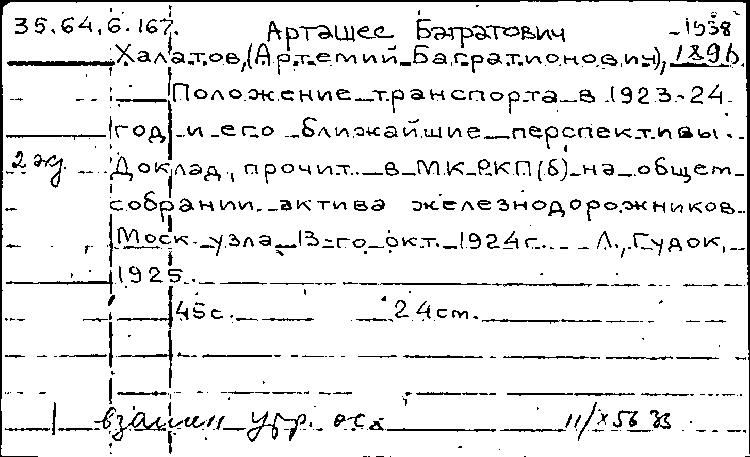 35.64.6.167. Арташес Багратович -1938
Халатов, (Артемий Багратионович), 1896
Положение транспорта в 1923-24
год и его ближайшие перспективы.
2 экз Доклад, прочит. в МК РКП(б) на общем
собрании актива железнодорожников
Моск. узла 13-го окт. 1924г. Л., Гудок,
1925.
45с. 24см.
взамен утр. 11/X 56